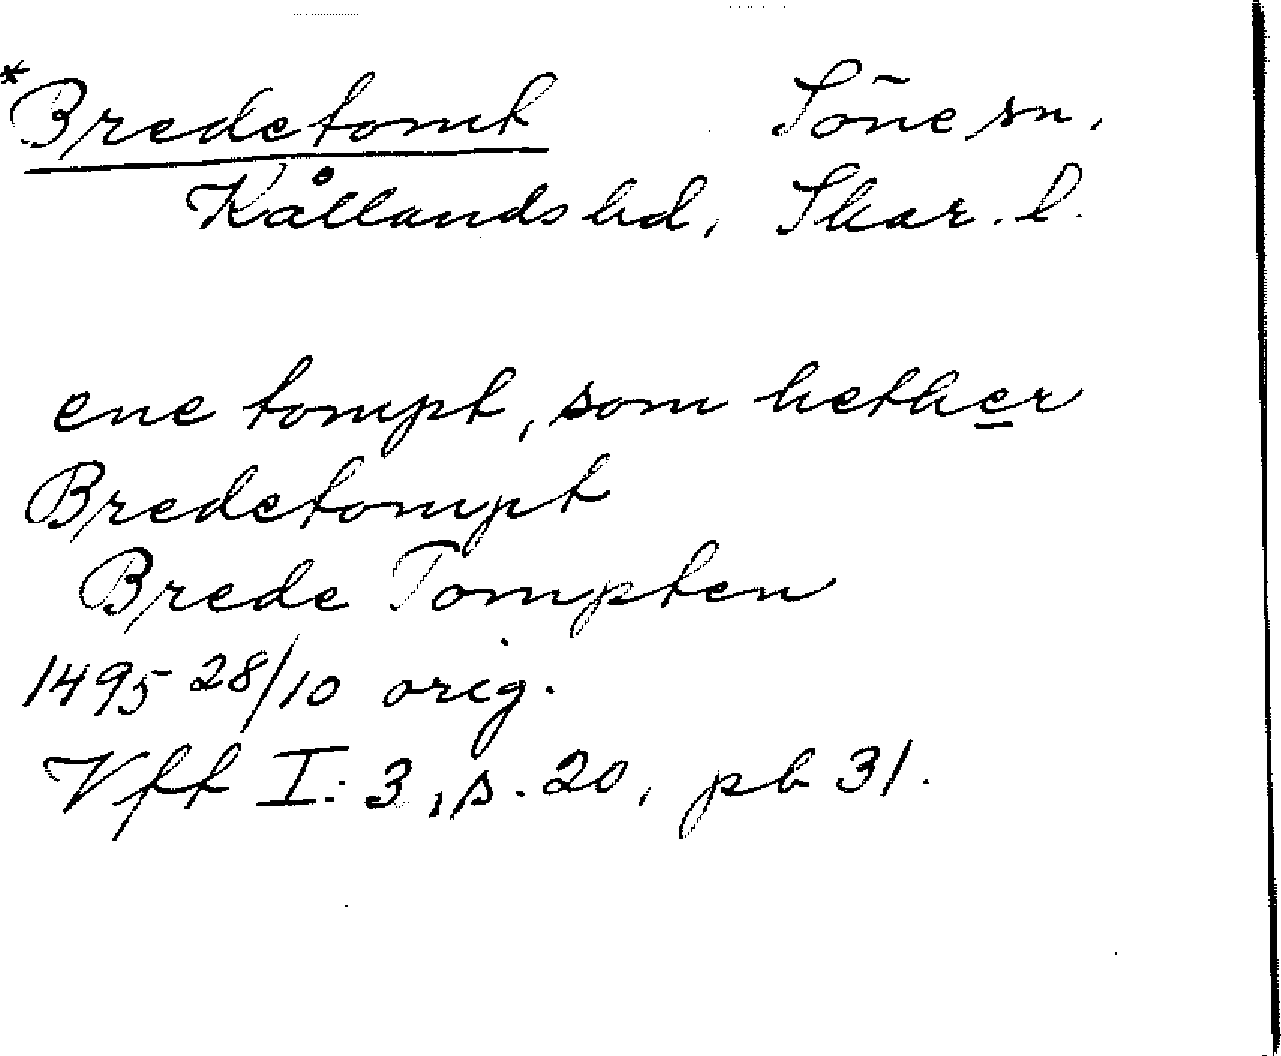 *Bredetomt Söne sn.
Kållands hd, Skar. l.
ene tompt, som hether
Bredetompt
Brede Tompten
1495 28/10 orig.
Vfft I: 3, s. 20, pb 31.